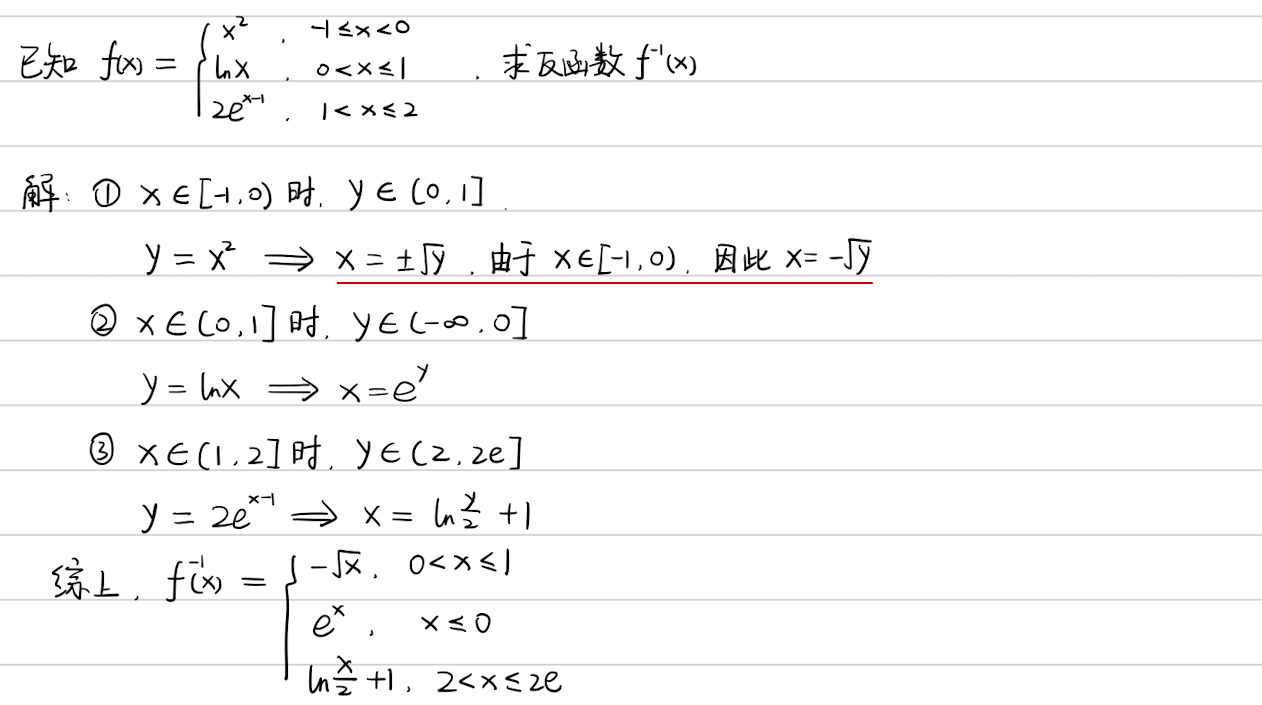 已知 f(x) = { x², -1≤x<0
lnx, 0<x≤1 , 求反函数 f⁻¹(x)
2e^(x-1), 1<x≤2
解: ① x∈[-1,0) 时, y∈(0,1].
y = x² ⟹ x = ±√y, 由于 x∈[-1,0), 因此 x = -√y
② x∈(0,1] 时, y∈(-∞,0]
y = lnx ⟹ x = e^y
③ x∈(1,2] 时, y∈(2,2e]
y = 2e^(x-1) ⟹ x = ln y/2 + 1
综上, f⁻¹(x) = { -√x, 0<x≤1
e^x, x≤0
ln x/2 + 1, 2<x≤2e